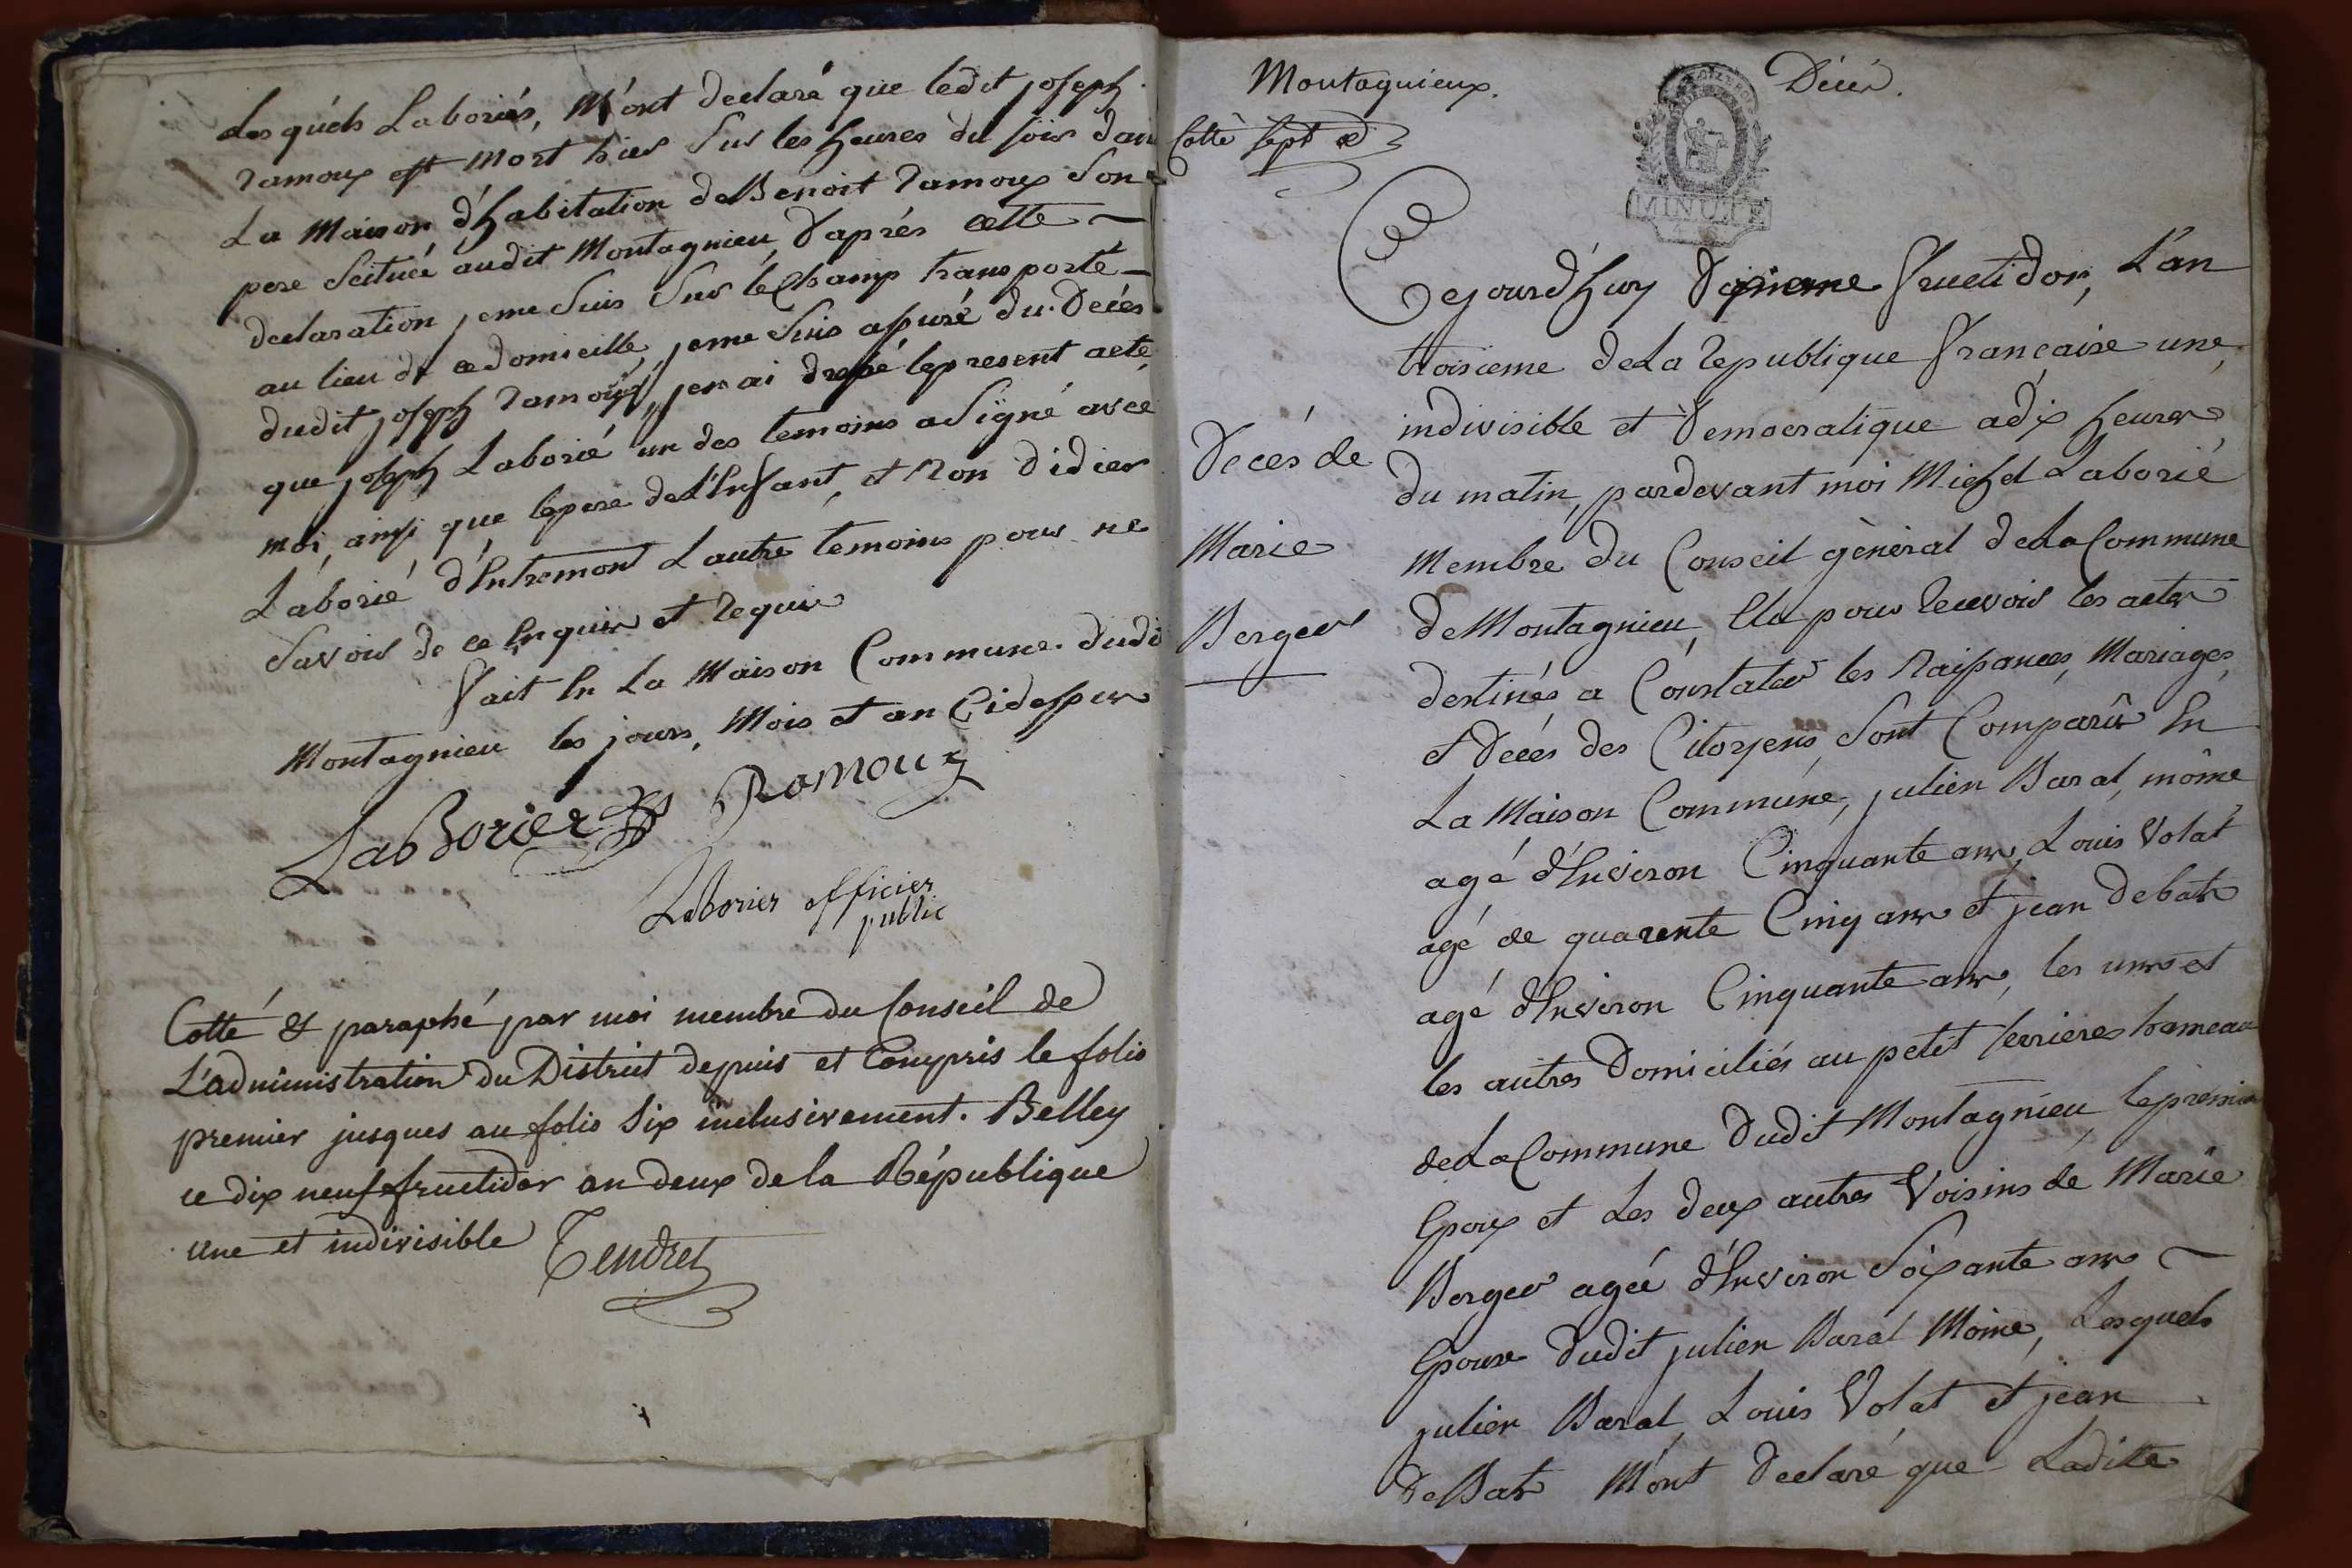 Lesquels Laboriés, M'ont declaré que ledit joseph
Ramoux est Mort hier Sur les heures du soir dans
La Maison d'habitation de Benoit Ramoux Son
pere Scituée audit Montagnieu, D'aprés cette
declaration jeme Suis Sur lechamp transporté
au lieu de ce domicille, jeme Suis assuré du Decés
dudit joseph Ramoux, jen ai dressé lepresent acte
que joseph Laborié un des temoins a Signé avec
moi, ainsi que lepere del'Enfant, et Non Didier
Laborié d'Entremont L'autre temoins pour ne
Savoir de ce Enquis et Requis
Fait En La Maison Commune dudit
Montagnieu les jours, Mois et an Cidessus
LabBorier Ramoux
Laborier officier
public
Cotté & paraphé par moi membre du Conseil de
L'administration du District depuis et Compris le folio
premier jusques au folio Six inclusivement. Belley
ce dix neuf fructidor an deux de la République
une et indivisible Tendret
Montagnieux. Décés.
Cotté sept
MINUTE
Cejourd'huy Fructidor, L'an
troisieme deLa Republique Francaise une
indivisible et Democratique adix heures
Decés de
du matin, pardevant moi Michel Laborié
Marie
Membre du Conseil gènèral deLa Commune
Berger
deMontagnieu, Elu pour Recevoir les actes
destinés a Constater les Naissances, Mariages
et Decés des Citoyens, Sont Comparûs En
La Maison Commune, julien Baral, môine
agé d'Environ Cinquante ans, Louis Volat
agé de quarente Cinq ans et jean debats
agé d'Environ Cinquante ans, les uns et
les autres Domiciliés au petit serrieres hameau
deLaCommune dudit Montagnieu, lepremier
Epoux et Les deux autres Voisins de Marie
Berger agée d'Environ Soixante ans
Epouse dudit julien Baral Moine, Lesquels
julien Baral, Louis Volat et jean
deBats M'ont Declaré que Laditte